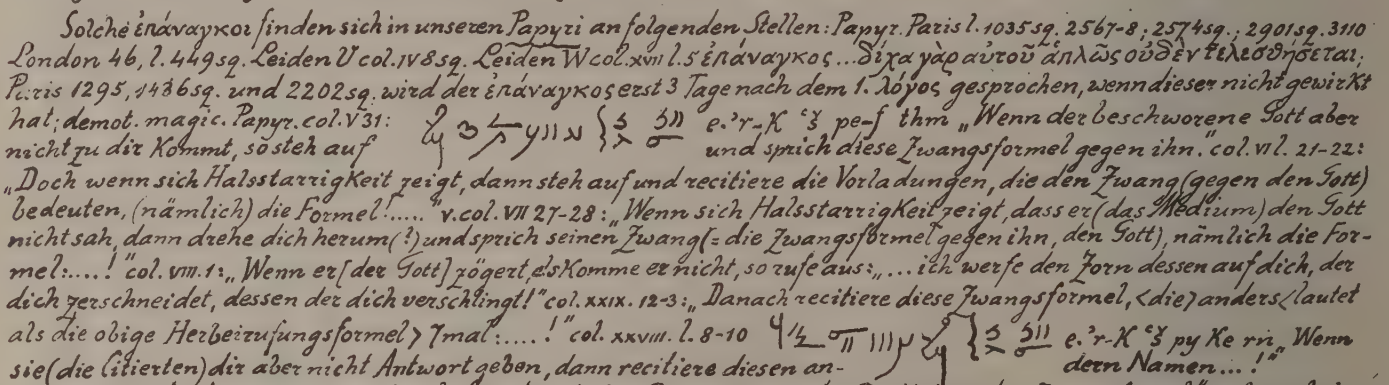 Solche ἐπάναγκοι finden sich in unseren Papyri an folgenden Stellen: Papyr. Paris l. 1035sq. 2567-8; 2574sq.; 2901sq. 3110
London 46, l. 449sq. Leiden V col. IV 8sq. Leiden W col. XVII l. 5 ἐπάναγκος... δίχα γὰρ αὐτοῦ ἁπλῶς οὐδὲν τελεσθήσεται;
Paris 1295, 1436sq. und 2202sq. wird der ἐπάναγκος erst 3 Tage nach dem 1. λόγος gesprochen, wenn dieser nicht gewirkt
hat; demot. magic. Papyr. col. V 31: e.'r-K pe-f thm „Wenn der beschworene Gott aber
nicht zu dir Kommt, so steh auf und sprich diese Zwangsformel gegen ihn." col. VI l. 21-22:
„Doch wenn sich Halsstarrigkeit zeigt, dann steh auf und recitiere die Vorladungen, die den Zwang (gegen den Gott)
bedeuten, (nämlich) die Formel!....." v. col. VII 27-28: „Wenn sich Halsstarrigkeit zeigt, dass er (das Medium) den Gott
nicht sah, dann drehe dich herum (?) und sprich seinen Zwang (= die Zwangsformel gegen ihn, den Gott), nämlich die For-
mel:....! "col. VIII. 1: „Wenn er [der Gott] zögert, als Komme er nicht, so rufe aus: „... ich werfe den Zorn dessen auf dich, der
dich zerschneidet, dessen der dich verschlingt!" col. XXIX. 12-3: „Danach recitiere diese Zwangsformel, <die> anders <lautet
als die obige Herbeirufungsformel> 7mal:....!" col. XXVIII. l. 8-10 e.'r-K py Ke rn „Wenn
sie (die Citierten) dir aber nicht Antwort geben, dann recitiere diesen an- dern Namen...!"